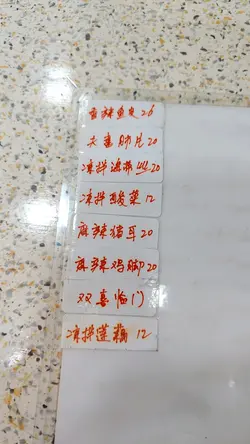 麻辣鱼皮 26
夫妻肺片 20
凉拌海带丝 20
凉拌酸菜 12
麻辣猪耳 20
麻辣鸡脚 20
双喜临门
凉拌莲藕 12